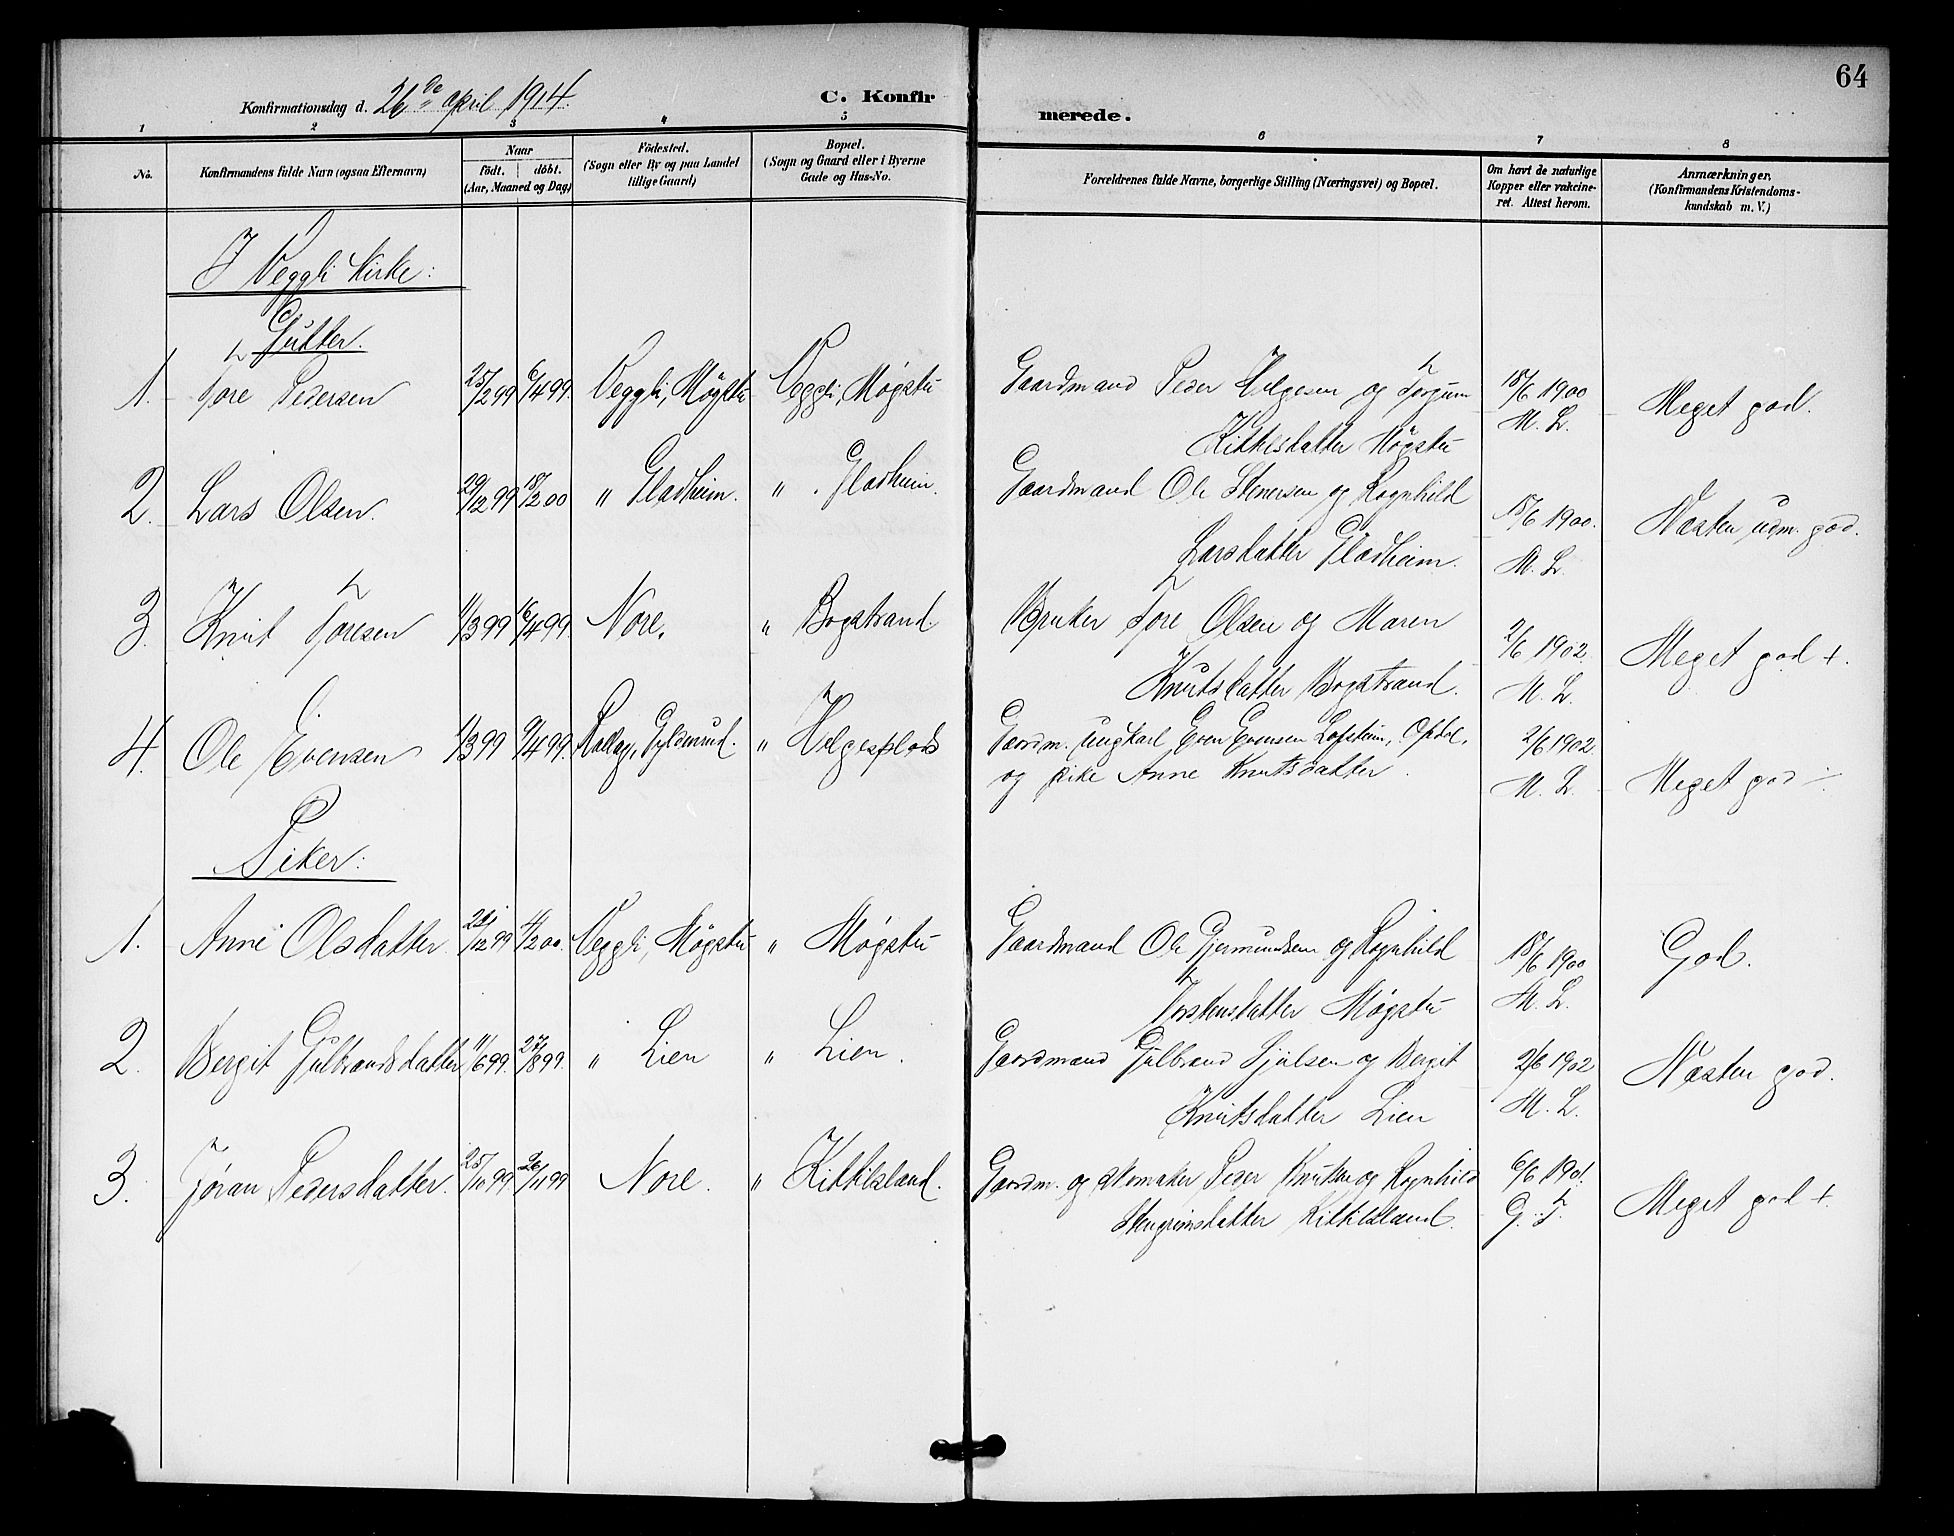 64
Konfirmationsdag d. 26de april 1914. C. Konfirmerede.
1 2 3 4 5 6 7 8
No. Konfirmandens fulde Navn (ogsaa Efternavn) Naar födt. döbt. (Aar, Maaned og Dag) Födested. (Sogn eller By og paa Landet tillige Gaard) Bopæl. (Sogn og Gaard eller i Byerne Gade og Hus-No. Forældrenes fulde Navne, borgerlige Stilling (Næringsvei) og Bopæl. Om havt de naturlige Kopper eller vakcineret. Attest herom. Anmærkninger, (Konfirmandens Kristendomskundskab m. V.)
I Veggli Kirke:
Gutter.
1. Tore Pedersen 25/2 99 6/4 99. Veggli, Møgstu Veggli, Møgstu Gaardmand Peder Helgesen og Jorgum 15/6 1900 Meget god.
Kittilsdatter Møgstu M. L.
2. Lars Olsen. 29/12 99 18/2 00 " Gladheim. " Gladheim. Gaardmand Ole Stenersen og Ragnhild 15/6 1900. Næsten udm. god.
Larsdatter Gladheim. M. L.
3. Knut Toresen 11/3 99 16/4 99 Nore. " Bogstrand. Bruker Tore Olsen og Maren 2/6 1902 Meget god +.
Knutsdatter Bogstrand. M. L.
4. Ole Evensen 1/3 99 9/4 99. Rollag, Gyldenrud. " Helgesplads Gaardm. ungkarl Even Evensen Lofsteim, Opdal, 2/6 1902. Meget god ÷.
og pike Anne Knutsdatter. M. L.
Piker:
1. Anne Olsdatter 22/12 99 4/2 00. Veggli, Møgstu " Møgstu Gaardmand Ole Gjermundsen og Ragnhild 15/6 1900 God.
Torstensdatter Møgstu M. L.
2. Bergit Gulbrandsdatter 11/6 99. 27/8 99. " Lien " Lien. Gaardmand Gulbrand Sjulsen og Bergit 2/6 1902 Næsten god.
Knutsdatter Lien M. L.
3. Jøran Pedersdatter. 25/10 99 26/11 99 Nore. " Kittilsland. Gaardm. og skomaker Peder Knutsen og Ragnhild 6/6 1901. Meget god +.
Stengrimsdatter Kittilsland. G. T.